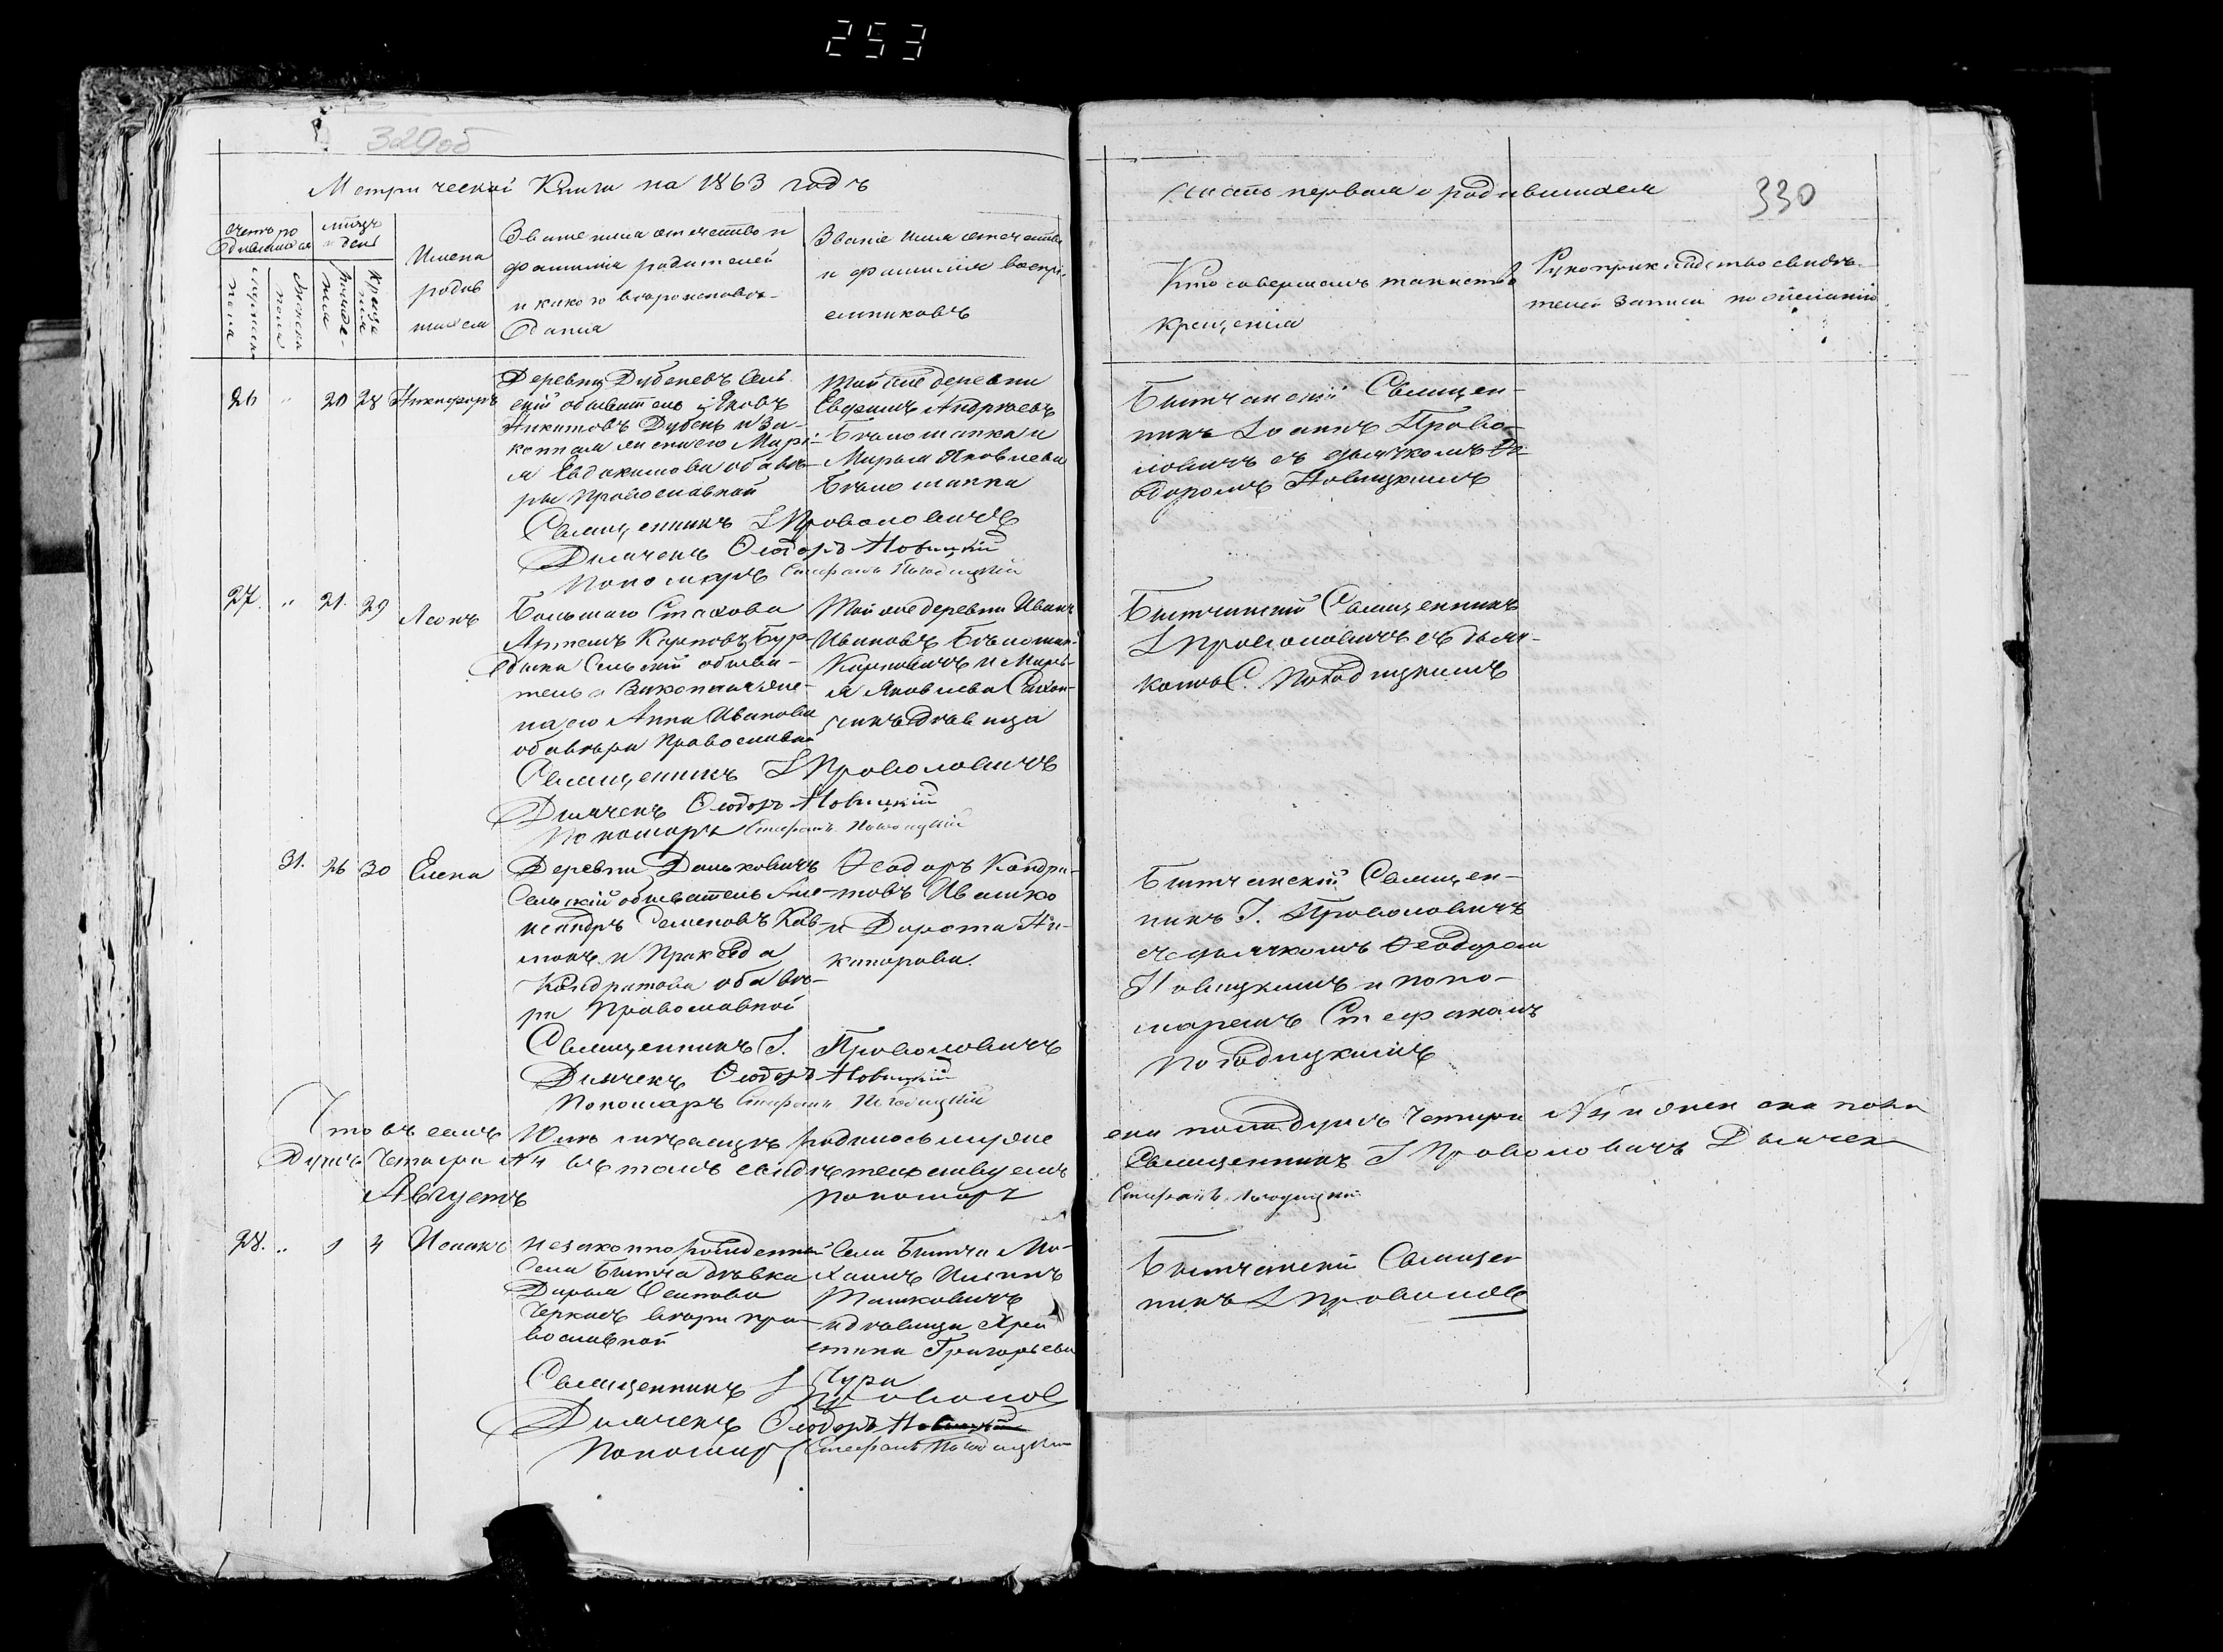 253
329об
Метрической Книги на 1863 годъ
Часть первая о родившихся
330
Счетъ родившихся
Мужеска пола
Женска пола
Месяцъ и день
Рожденія
Крещенія
Имена
родив
шихся
Званіе имя отечество и
фамилія родителей
и какого вероисповѣ-
данія
Званіе имя отечество
и фамилія воспрі-
емниковъ
Кто совершалъ таинство
крещенія
Рукоприкладство свидѣ-
телей записи по желанію
26 " 20 28 Никифоръ
Деревни Дубеневъ Сель
скій обыватель Яковъ
Никитовъ Дубень и За-
конная жена его Марі-
я Евдокимова оба вѣ-
ры православной
Той же деревни
Евфимъ Андреевъ
Бѣлошапка и
Марья Яковлева
Бѣлошапка
Бытчанскій Священ-
никъ Іоаннъ Прово-
ловичъ съ дьячкомъ Ѳе-
одоромъ Новицкимъ
Священникъ І Проволовичъ
Дьячекъ Ѳеодоръ Новицкій
Пономарь Стефанъ Погодицкій
27. " 21. 29 Леонъ
Большаго Стахова
Артемъ Карповъ Бур
дыка Сельскій обыва-
тель и Законная же-
на его Анна Иванова
оба вѣры православной
Той же деревни Иванъ
Ивановъ
Карповичъ и Марь-
я Яковлева
дѣвица
Бытчанскій Священникъ
І Проволовичъ съ дьяч-
комъ С. Погодицкимъ
Священникъ І Проволовичъ
Дьячекъ Ѳеодоръ Новицкій
Пономарь Стефанъ Погодицкій
31. 26 30 Елена
Деревни Дальковичъ
Сельскій обыватель Але-
ксандръ Семеновъ Кав-
и Пракседа
Кондратова оба вѣ-
ры Православной
Ѳеодоръ Кондра-
товъ Ивашко
и Дорота Ни-
канорова.
Бытчанскій Священ-
никъ І. Проволовичъ
съ дьячкомъ Ѳеодоромъ
Новицкимъ и поно-
маремъ Стефаномъ
Погодицкимъ
Священникъ І. Проволовичъ
Дьячекъ Ѳеодоръ Новицкій
Пономарь Стефанъ Погодицкій
Что въ семъ Юлѣ мѣсяцѣ родилось мужескаго пола душъ четыри №4 и женскаго пола
душъ четыри №4 въ томъ свидѣтельствуемъ Священникъ І Проволовичъ Дьячекъ
Пономарь Стефанъ Погодицкій
Августъ
28. " 1 4 Исаакъ
незаконнорожденный
Села Бытча дѣвка
Дарья Осипова
Черкасъ вѣры пра-
вославной
Села Бытча Ми-
хаилъ Ильинъ
Машковичъ
и дѣвица Хри
стина Григорьева
Чура
Бытчанскій Священ
никъ І Проволов
Священникъ І Проволов
Дьячекъ Ѳеодоръ Новицкій
Пономарь Стефанъ Погодицкій